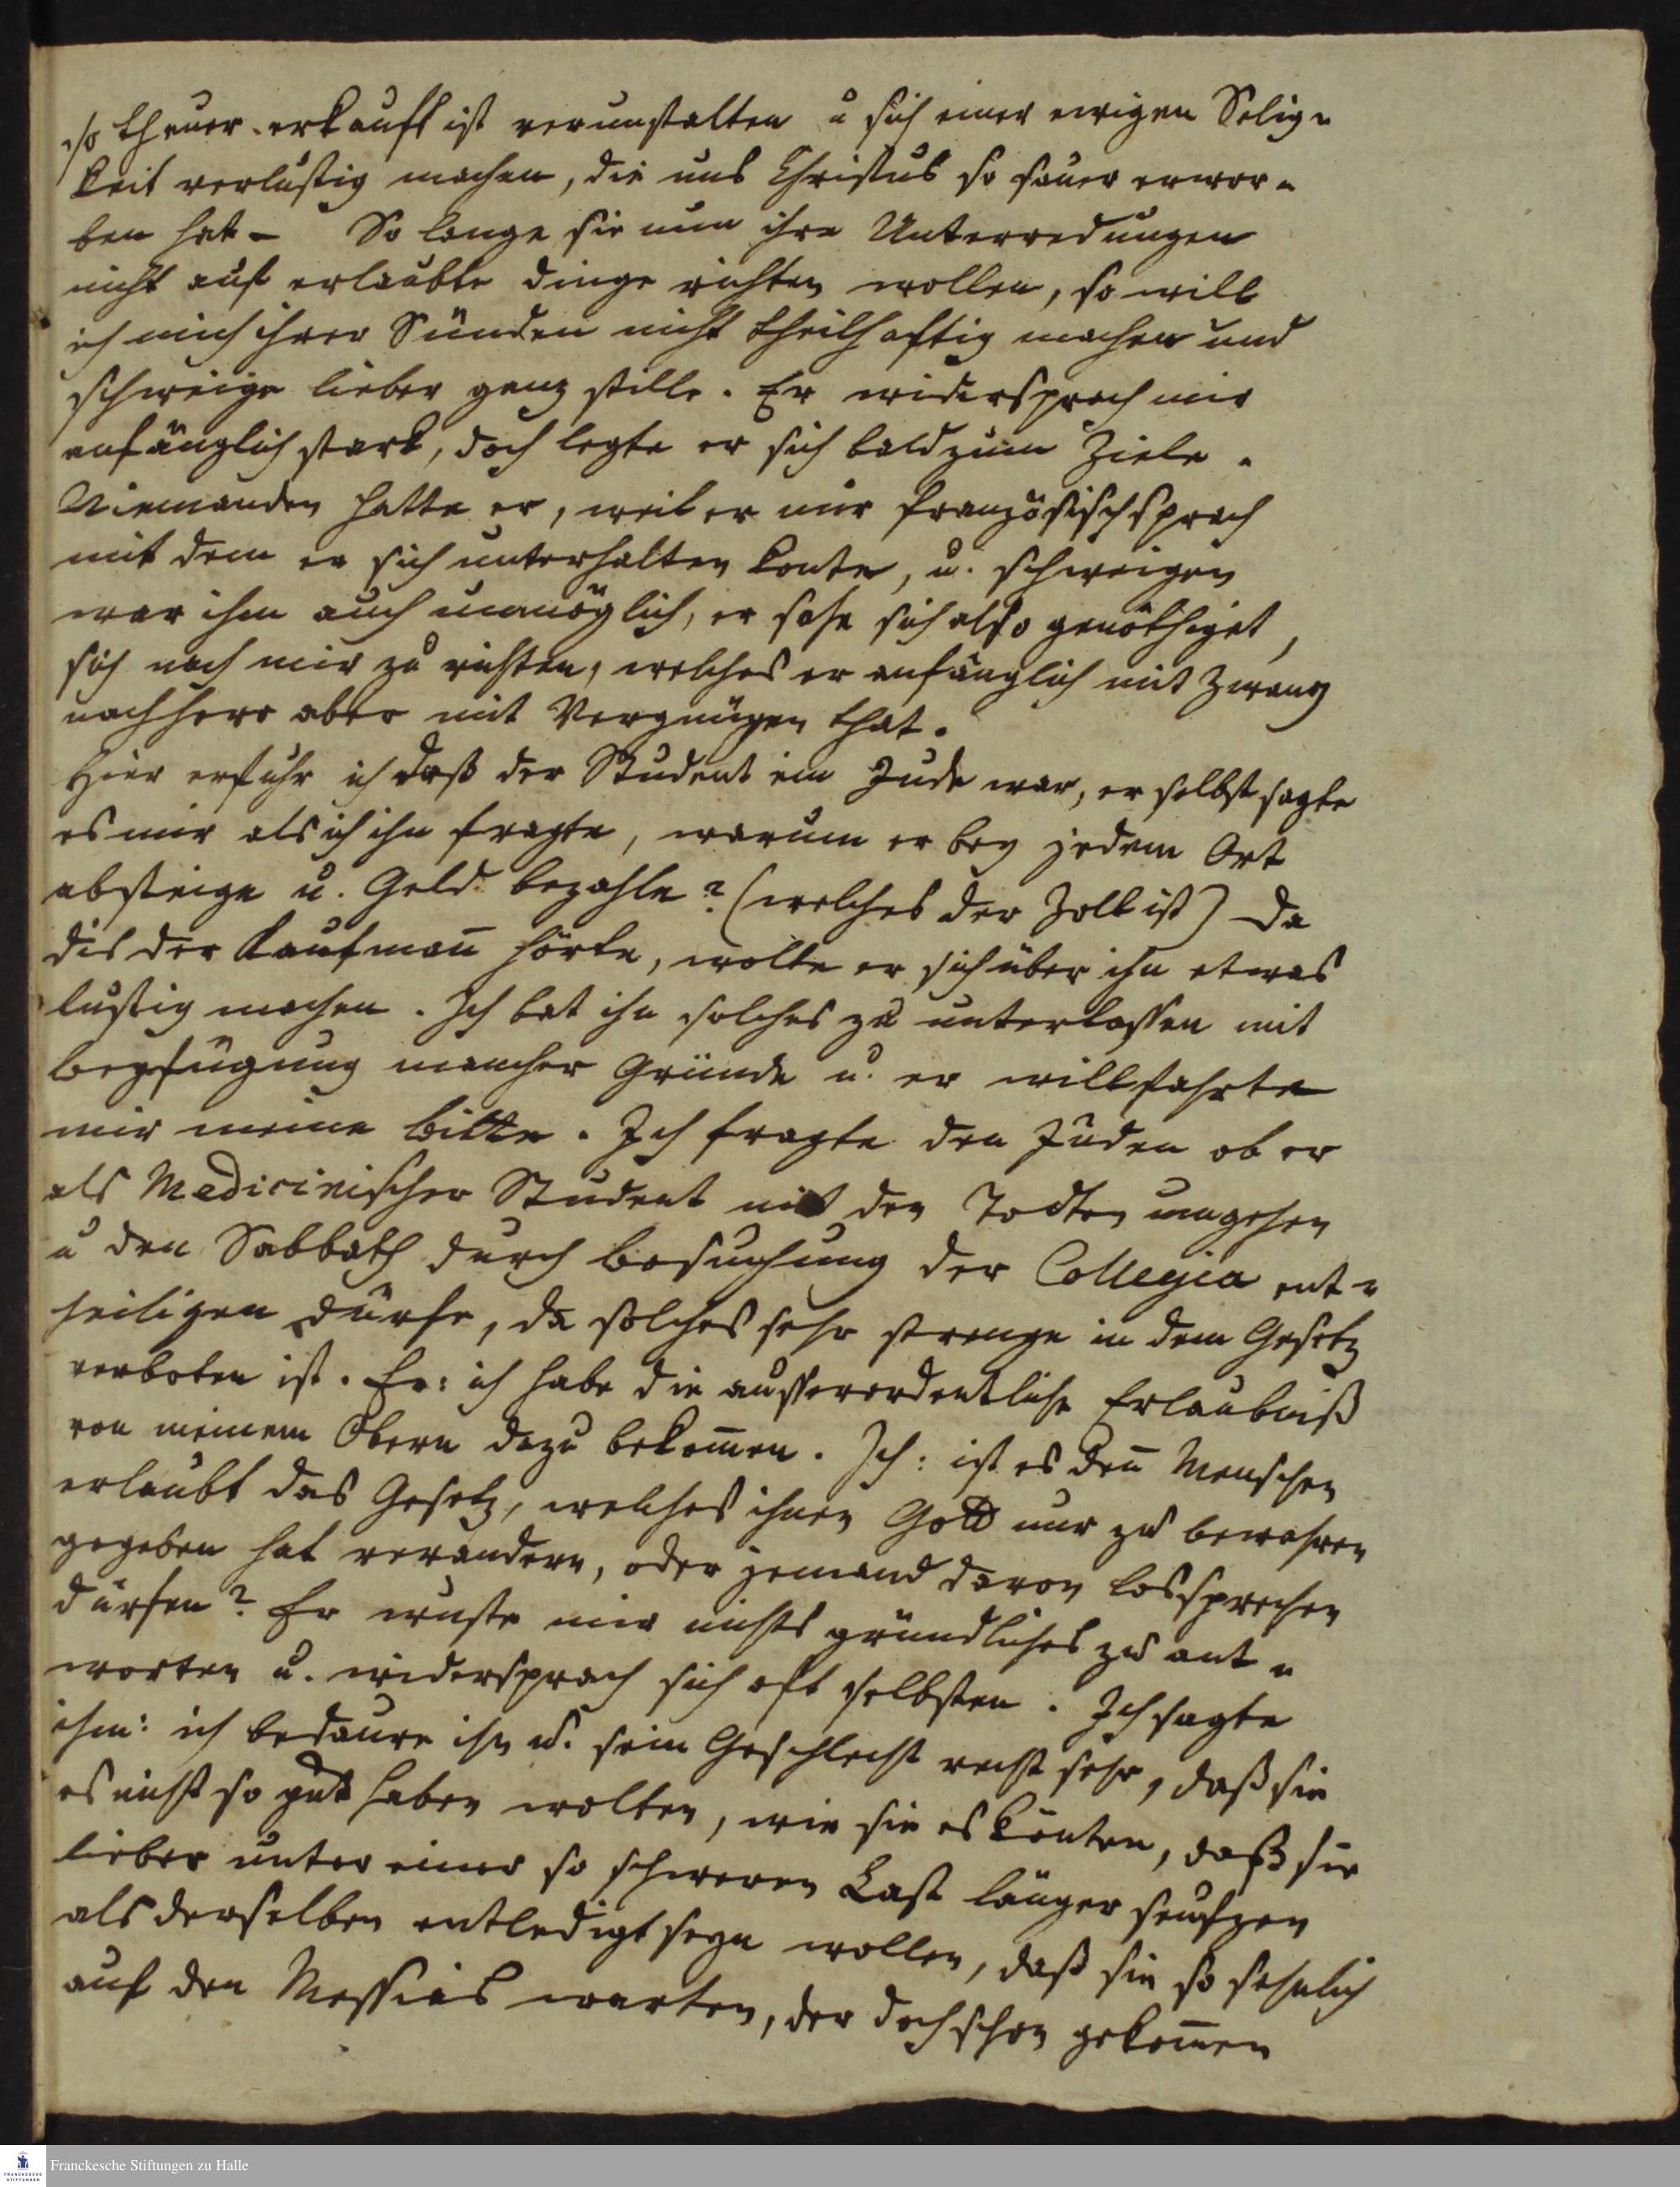 so theuer erkauft ist verunstalten u sich einer ewigen Selig-
keit verlustig machen, die uns Christus so sauer erwor-
ben hat – So lange sie nun ihre Unterredungen
nicht auf erlaubte dinge richten wollen, so will
ich mich ihrer Sünden nicht theilhaftig machen und
schweige lieber ganz stille. Er widersprach mir
anfänglich stark, doch legte er sich bald zum Ziele.
Niemanden hatte er, weil er nur französisch sprach
mit dem er sich unterhalten konte, u. schweigen
war ihm auch unmöglich, er sahe sich also genöthiget,
sich nach mir zu richten, welches er anfänglich mit Zwang
nachhero aber mit Vergnügen that.
Hier erfuhr ich daß der Student ein Jude war, er selbst sagte
es mir als ich ihn fragte, warum er bey jedem Ort
absteige u. Geld bezahle? (welches der Zoll ist) Da
dis der Kaufman̄ hörte, wolte er sich über ihn etwas
lustig machen. Ich bat ihn solches zu unterlassen mit
beyfügung mancher Gründe u. er willfahrte
mir meine bitte. Ich fragte den Juden ob er
als Medicinischer Student mit den Todten umgehen
u den Sabbath durch besuchung der Collegia ent-
heiligen dürfe, da solches sehr strenge in dem Gesetz
verboten ist. Er: ich habe die ausserordentliche Erlaubniß
von meinem Obern dazu bekom̄en. Ich: ist es den̄ Menschen
erlaubt das Gesetz, welches ihnen Gott nur zu bewahren
gegeben hat verändern, oder jemand davon lossprechen
dürfen? Er wuste mir nichts gründliches zu ant-
worten u. widersprach sich oft selbsten. Ich sagte
ihm: ich bedaure ihn u. sein Geschlecht recht sehr, daß sie
es nicht so gut haben wolten, wie sie es könten, daß sie
lieber unter einer so schweren Last länger seufzen
als derselben entledigt seyn wollen, daß sie so sehnlich
auf den Messias warten, der doch schon gekom̄en
Franckesche Stiftungen zu Halle